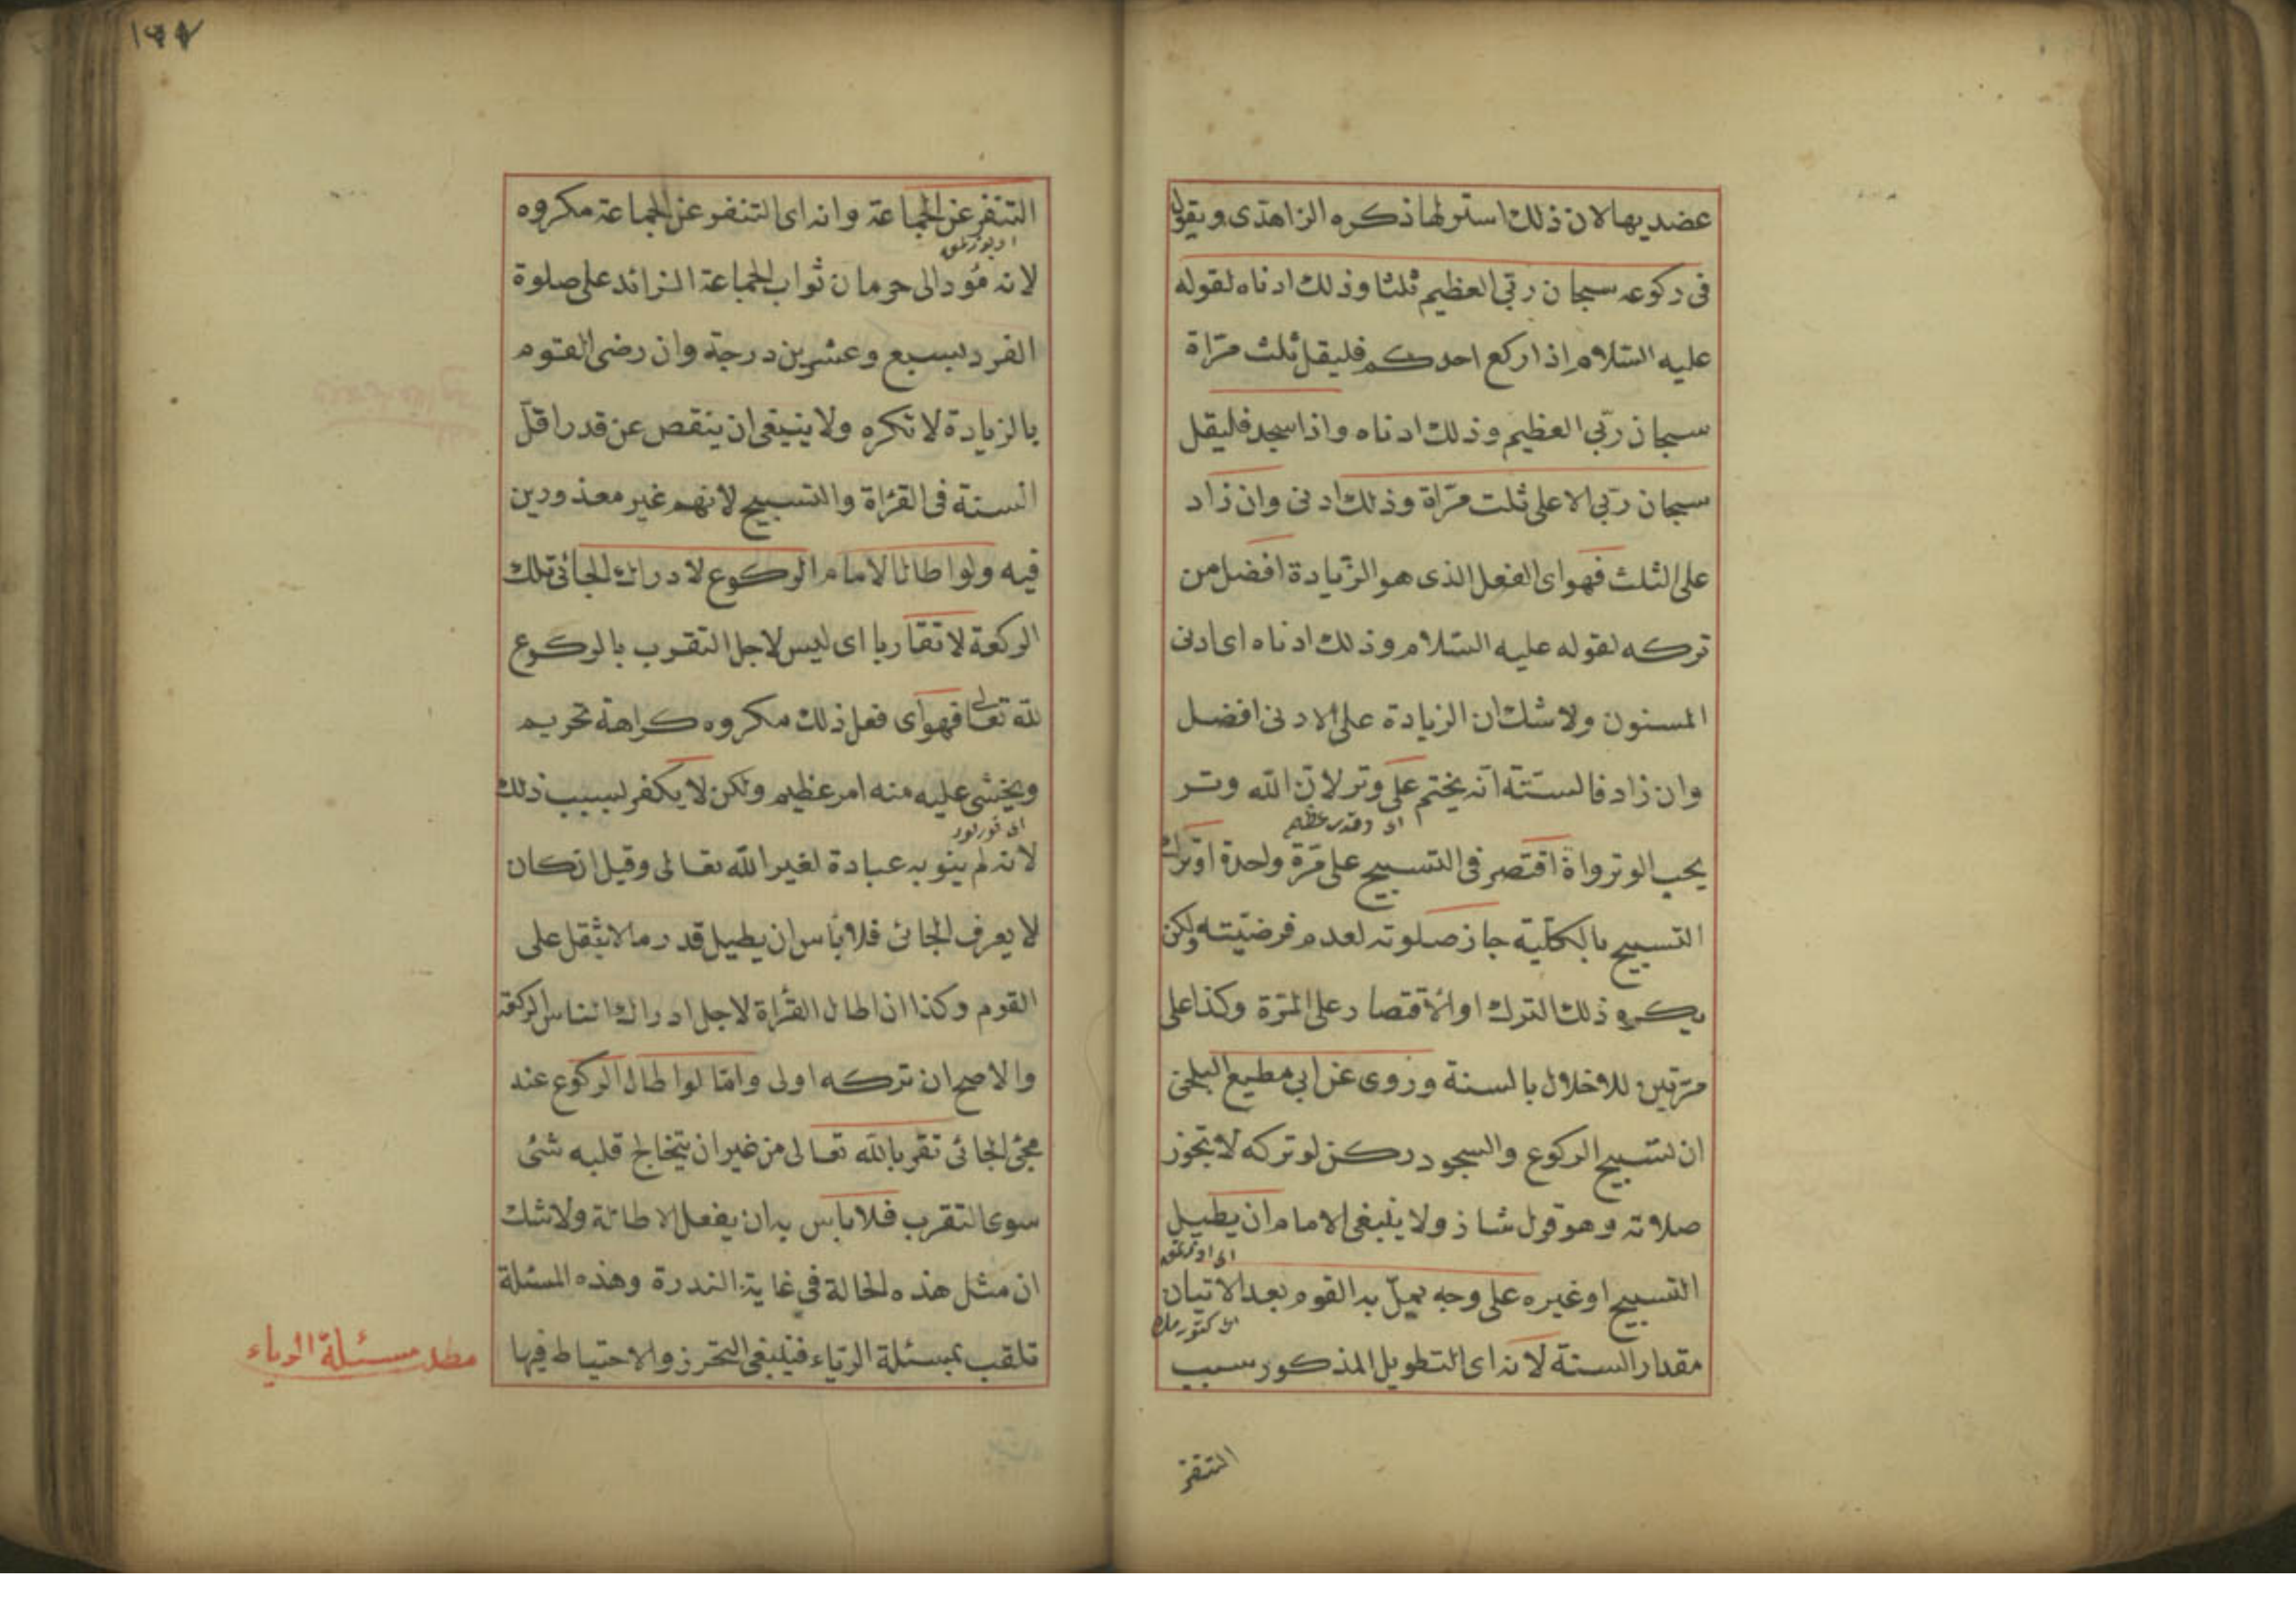 عضديها لان ذلك استر لها ذكره الزاهدى ويقول
فى ركوعه سبحان ربّى العظيم ثلثا وذلك ادناه لقوله
عليه السّلام اذا ركع احدكم فليقل ثلث مرّاة
سبحان ربّى العظيم وذلك ادناه واذا سجد فليقل
سبحان ربّى الاعلى ثلث مرّاة وذلك ادنى وان زاد
على الثلث فهو اى الفعل الذى هو الزّيادة افضل من
تركه لقوله عليه السّلام وذلك ادناه اى ادنى
المسنون ولا شك ان الزيادة على الادنى افضل
وان زاد فالسنّة انّه يختم على وتر لانّ الله وتر
يحب الوتر واة اقتصر فى التسبيح على مرّة واحدة او ترك
التسبيح بالكلّيّة جاز صلوته لعدم فرضيّته ولكن
يكره ذلك الترك او الاقتصار على المرّة وكذا على
مرّتين للاخلال بالسنة وروى عن ابى مطيع البلخى
ان تسبيح الركوع والسجود ركن لو تركه لا تجوز
صلاته وهو قول شاذ ولا ينبغى الامام ان يطيل
التسبيح او غيره على وجه يملّ به القوم بعد الاتيان
مقدار السنة لانه اى التطويل المذكور سبب
التنفر
١٩٧
التنفر عن الجماعة وانه اى التنفر عن الجماعة مكروه
لانه مؤد الى حرمان ثواب الجماعة الزائد على صلوة
الفرد بسبع وعشرين درجة وان رضى القوم
بالزيادة لا تكره ولا ينبغى ان ينقص عن قدر اقلّ
السنة فى القرٰاة والتسبيح لانهم غير معذورين
فيه ولو اطال الامام الركوع لادراك الجائى تلك
الركعة لا تقاربا اى ليس لاجل التقرب بالركوع
لله تعالى فهو اى فعل ذلك مكروه كراهة تحريم
ويخشى عليه منه امر عظيم ولكن لا يكفر بسبب ذلك
لانه لم ينو به عبادة لغير الله تعالى وقيل ان كان
لا يعرف الجائى فلا بأس ان يطيل قدر ما لا يثقل على
القوم وكذا ان اطال القرٰاة لاجل ادراك الناس الركعة
والاصح ان تركه اولى وامّا لو اطال الركوع عند
مجئ الجائى تقربا لله تعالى من غير ان يتخالج قلبه شئ
سوى التقرب فلا باس به ان يفعل الاطالة ولا شك
ان مثل هذه الحالة فى غاية الندرة وهذه المسئلة
تلقب بمسئلة الرياء فينبغى التحرز والاحتياط فيها
مطلب مسئلة الرياء